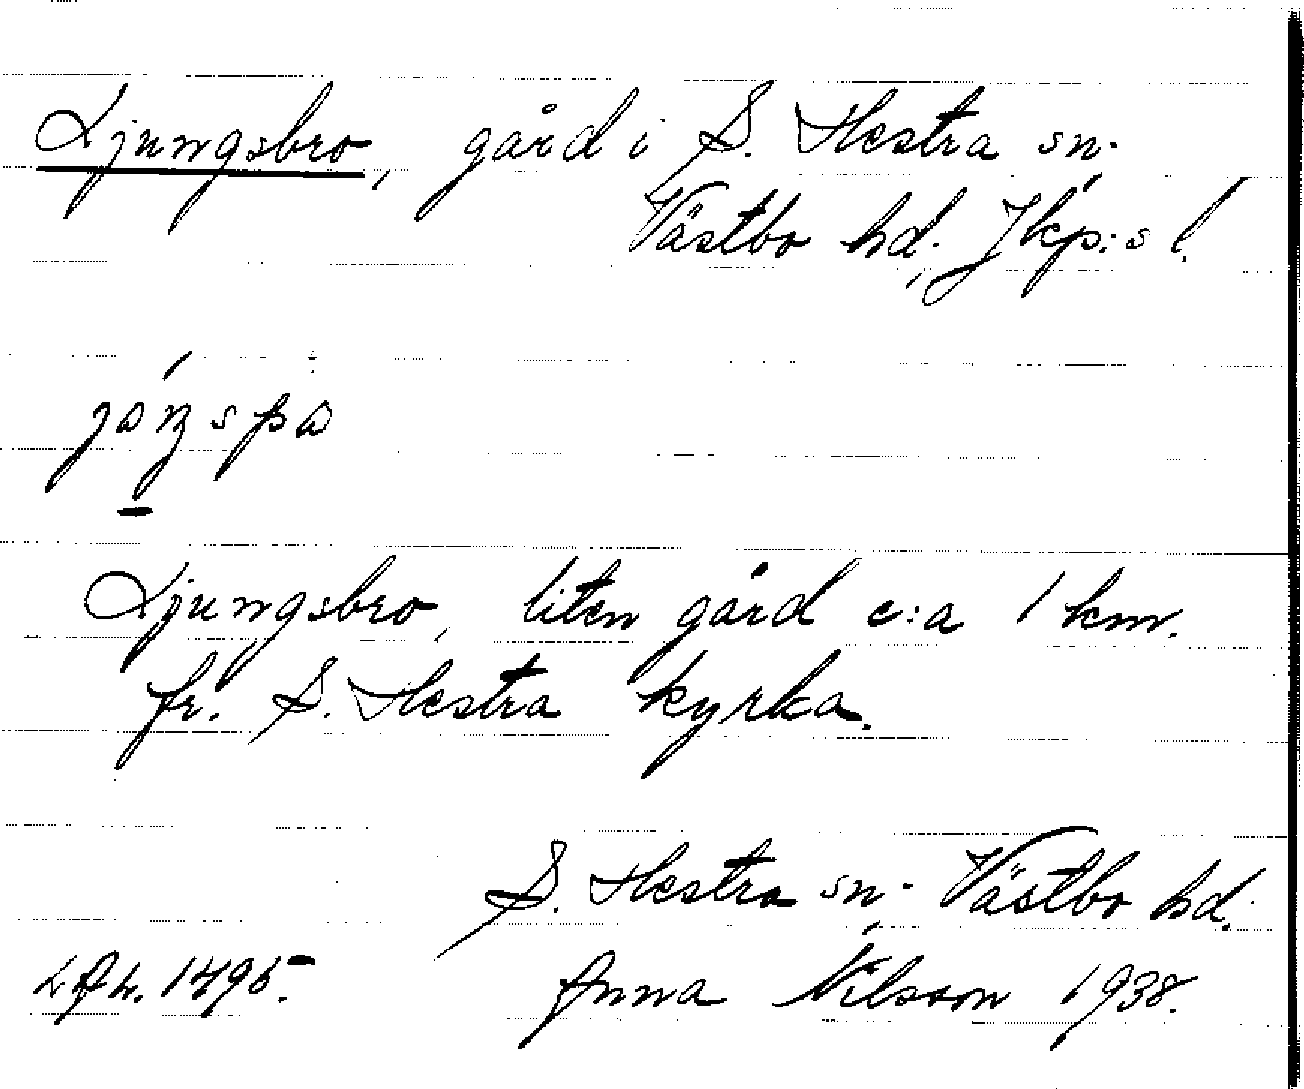 Ljungsbro, gård i S. Hestra sn.
Västbo hd., Jkp:s l.
Ljungsbro, liten gård c:a 1 km.
fr. S. Hestra kyrka.
S. Hestra sn. Västbo hd.
1495. Anna Nilsson 1938.